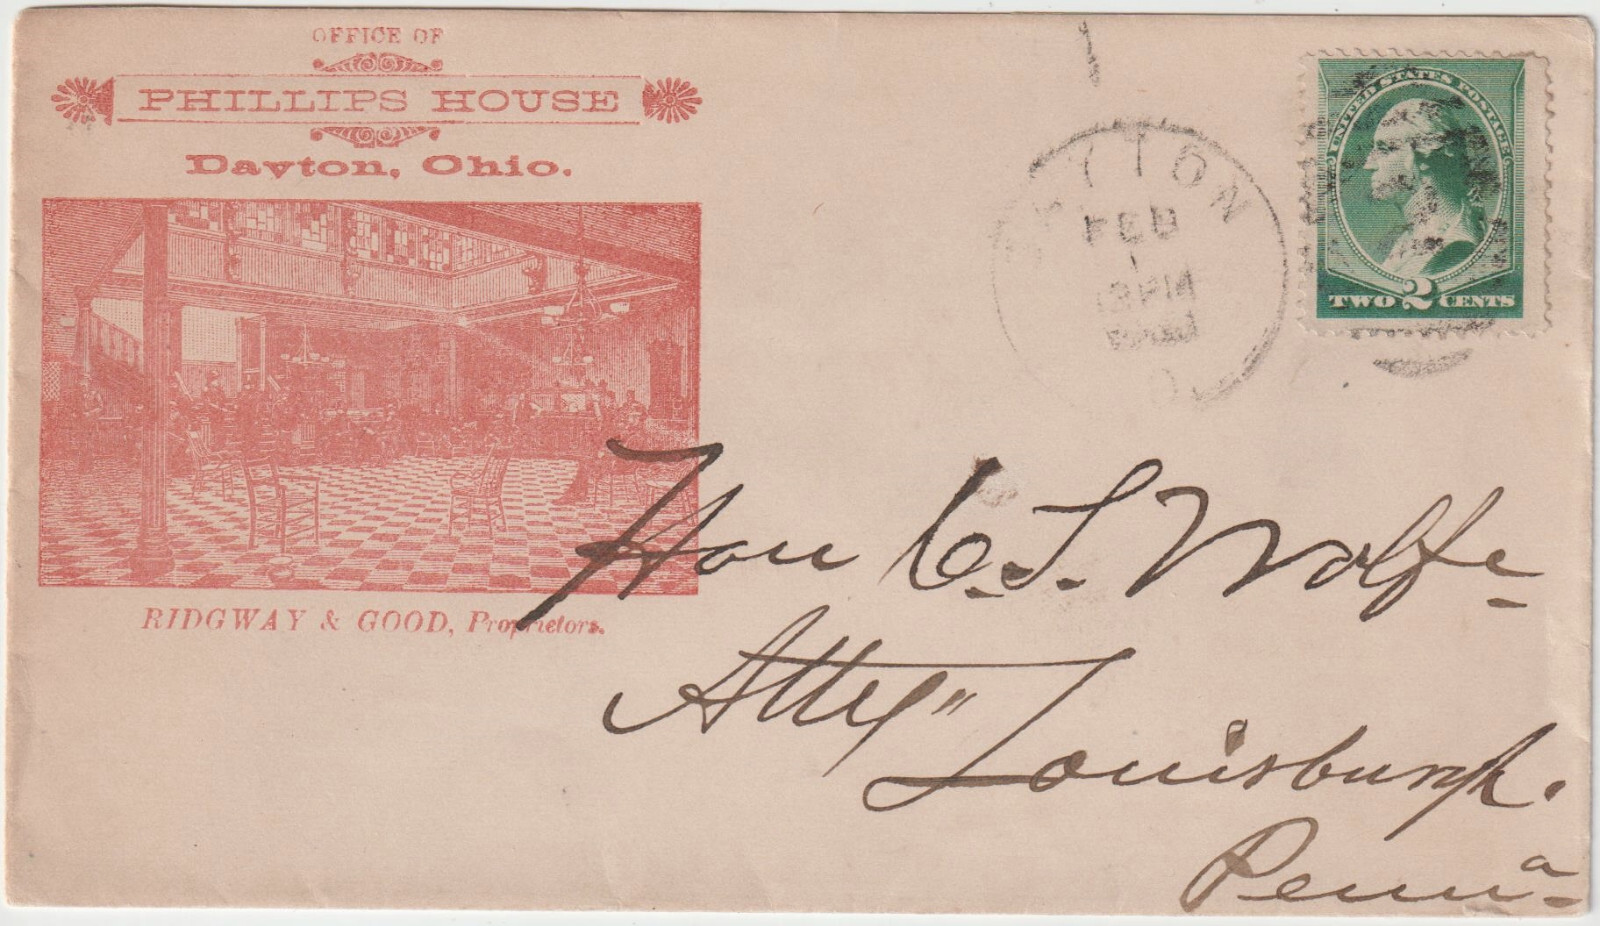 OFFICE OF
PHILLIPS HOUSE
Dayton, Ohio.
RIDGWAY & GOOD, Proprietors.
DAYTON
FEB
PM
O
UNITED STATES POSTAGE
TWO 2 CENTS
Hon C. S. Wolfe
Atty"
Louisburgh.
Penna